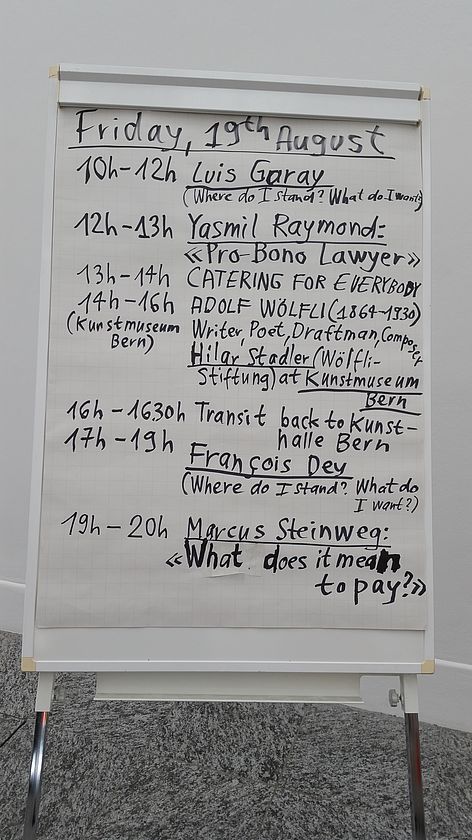 Friday, 19th August
10h-12h Luis Garay
(Where do I stand? What do I want?)
12h-13h Yasmil Raymond:
«Pro-Bono Lawyer»
13h-14h CATERING FOR EVERYBODY
14h-16h ADOLF WÖLFLI (1864-1930)
(Kunstmuseum Writer, Poet, Draftman, Composer
Bern) Hilar Stadler (Wölfli-
Stiftung) at Kunstmuseum
Bern
16h-1630h Transit back to Kunst-
halle Bern
17h-19h
François Dey
(Where do I stand? What do
I want?)
19h-20h Marcus Steinweg:
«What does it mean
to pay?»